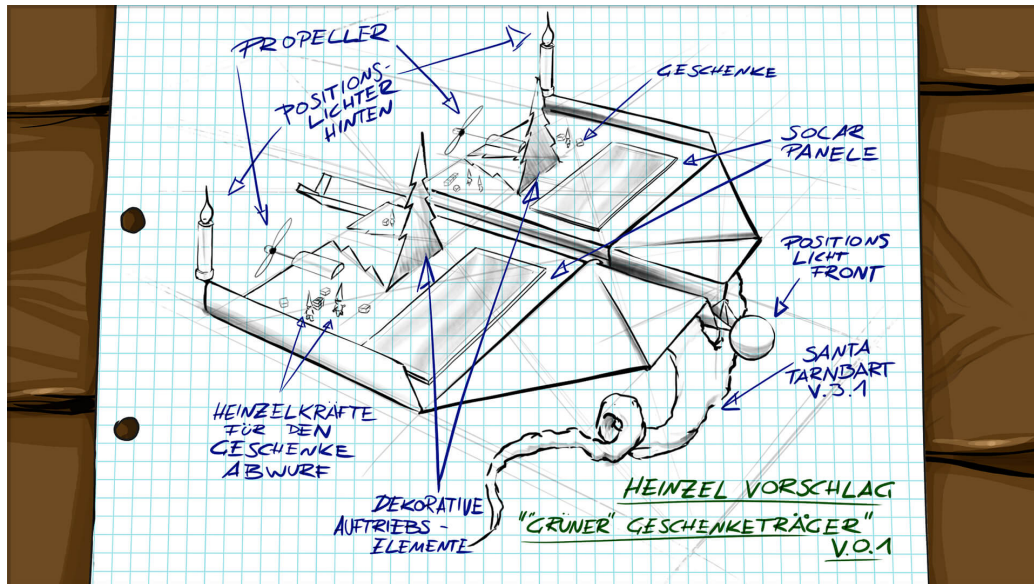 PROPELLER
POSITIONS-
LICHTER
HINTEN
GESCHENKE
SOLAR
PANELE
POSITIONS
LICHT
FRONT
SANTA
TARNBART
V.3.1
HEINZELKRÄFTE
FÜR DEN
GESCHENKE
ABWURF
DEKORATIVE
AUFTRIEBS-
ELEMENTE
HEINZEL VORSCHLAG
"GRÜNER" GESCHENKETRÄGER"
V.0.1